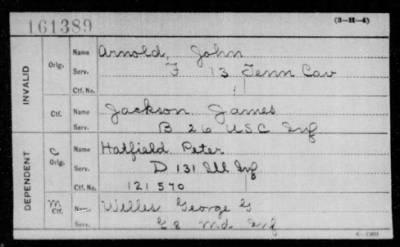 161389
(3-H-4)
INVALID
Orig.
Name Arnold, John
Serv. F 13 Tenn Cav
Ctf. No.
Ctf.
Name Jackson James
Serv. B 26 USC Inf
DEPENDENT
C Orig.
Name Hatfield Peter
Serv. D 131 Ill Inf
Ctf. No. 121540
M Ctf.
Name George G
8 Md. Inf